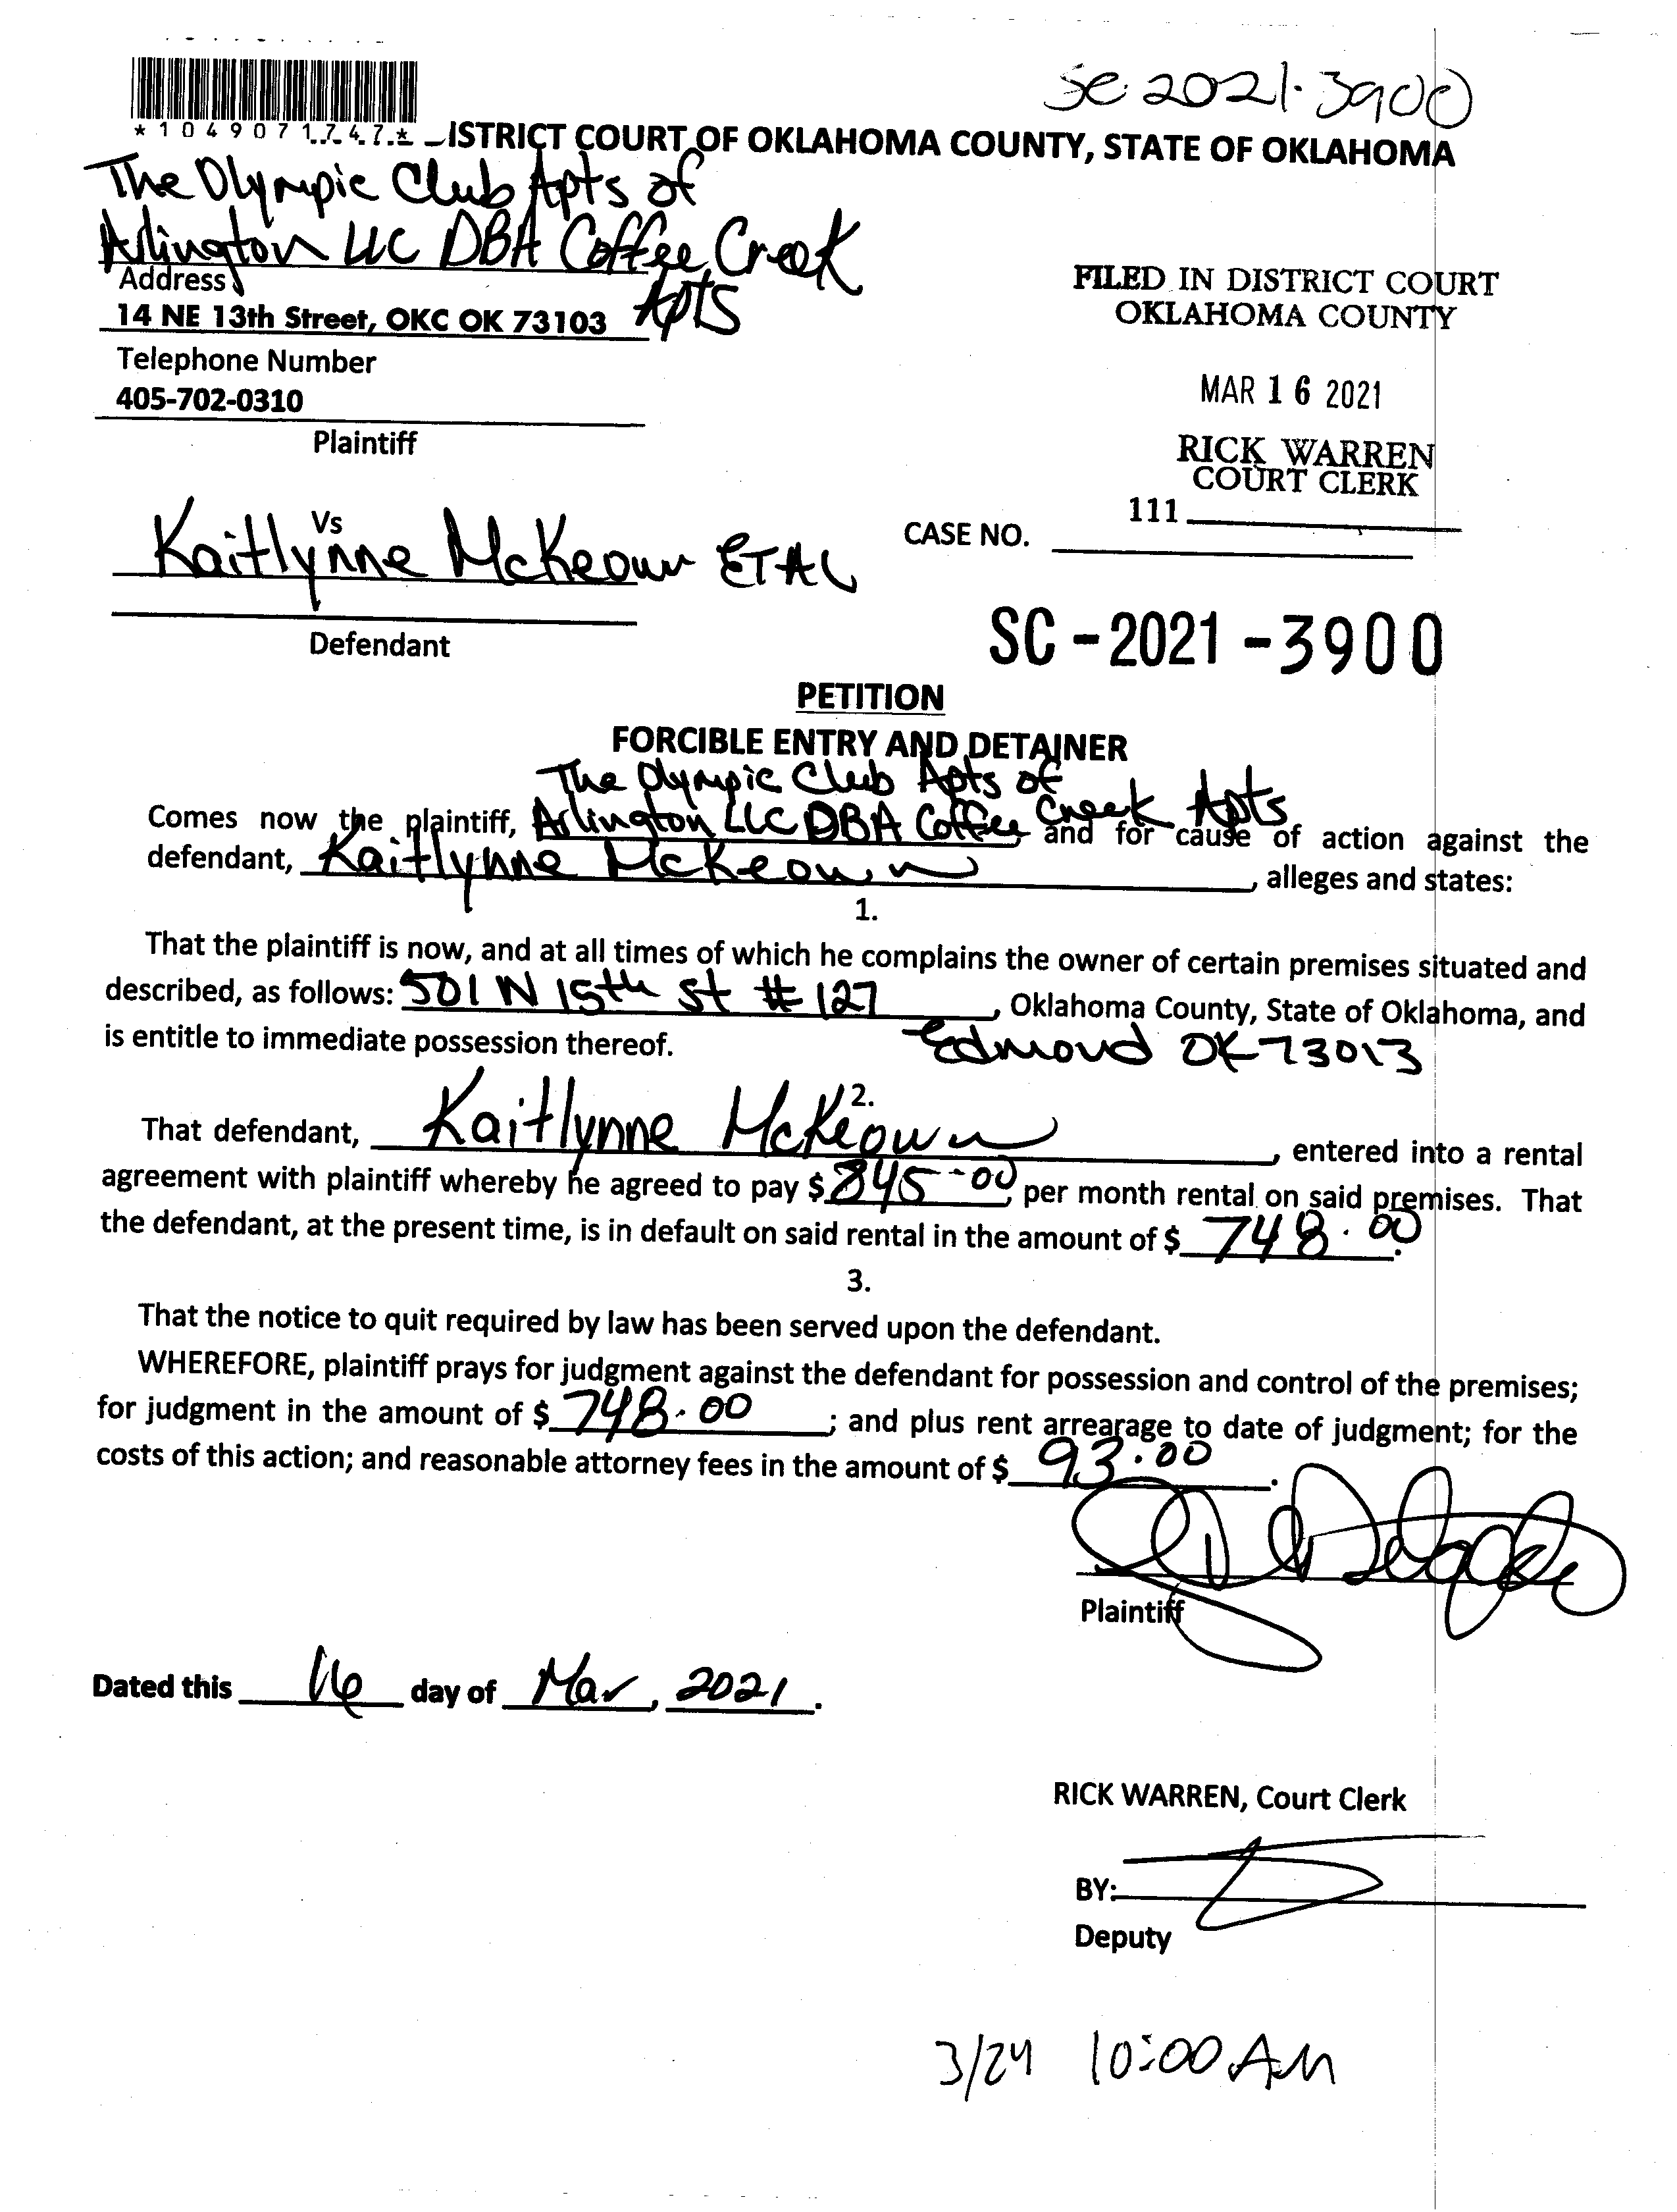 SC-2021-3900
*1049071747*
ISTRICT COURT OF OKLAHOMA COUNTY, STATE OF OKLAHOMA
The Olympic Club Apts of
Arlington LLC DBA Coffee Creek
Apts
Address
14 NE 13th Street, OKC OK 73103
Telephone Number
405-702-0310
Plaintiff
FILED IN DISTRICT COURT
OKLAHOMA COUNTY
MAR 16 2021
RICK WARREN
COURT CLERK
111
Vs
Kaitlynne McKeown ETAL
CASE NO.
Defendant
SC-2021-3900
PETITION
FORCIBLE ENTRY AND DETAINER
The Olympic Club Apts of
Comes now the plaintiff, Arlington LLC DBA Coffee Creek Apts and for cause of action against the
defendant, Kaitlynne McKeown, alleges and states:
1.
That the plaintiff is now, and at all times of which he complains the owner of certain premises situated and
described, as follows: 501 N 15th St # 127, Oklahoma County, State of Oklahoma, and
is entitle to immediate possession thereof. Edmond OK 73013
2.
That defendant, Kaitlynne McKeown, entered into a rental
agreement with plaintiff whereby he agreed to pay $ 845-00, per month rental on said premises. That
the defendant, at the present time, is in default on said rental in the amount of $ 748.00.
3.
That the notice to quit required by law has been served upon the defendant.
WHEREFORE, plaintiff prays for judgment against the defendant for possession and control of the premises;
for judgment in the amount of $ 748.00; and plus rent arrearage to date of judgment; for the
costs of this action; and reasonable attorney fees in the amount of $ 93.00.
Plaintiff
Dated this 16 day of Mar, 2021.
RICK WARREN, Court Clerk
BY:
Deputy
3/24 10:00 AM